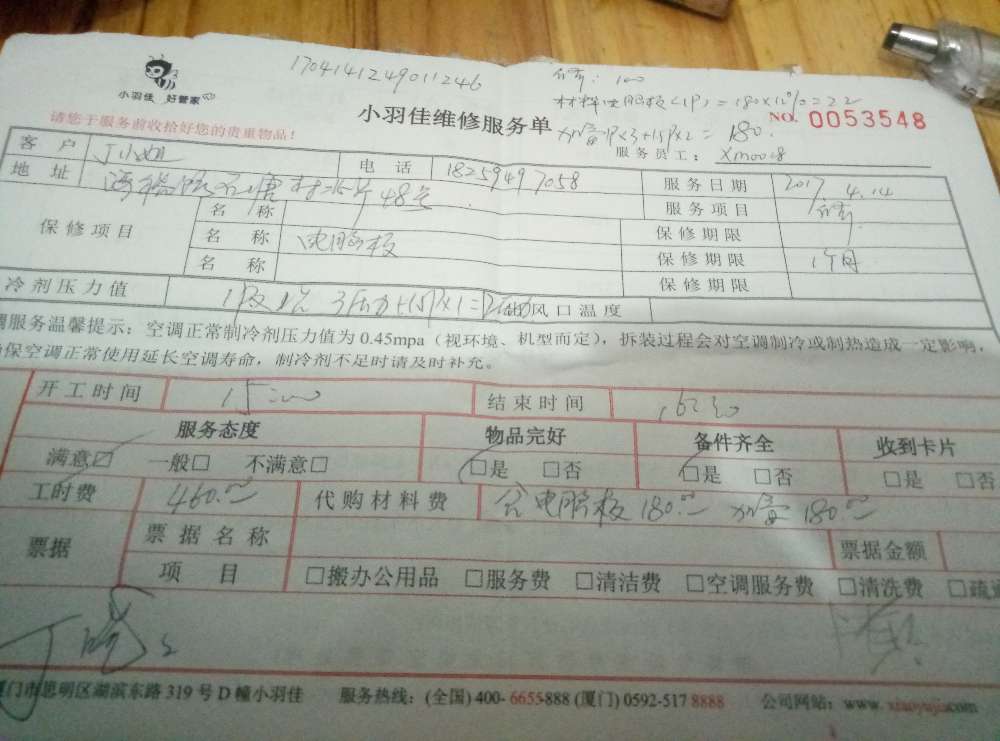 1704141249011246
小羽佳 好管家
材料电脑板(1P)=180×12%=22
请您于服务前收拾好您的贵重物品!
小羽佳维修服务单
NO. 0053548
加雪1P×3+1.5P×2=180.
服务员工: Xm0018
客户 丁小姐 电话 18259497058 服务日期 2017.4.14
地址 48号 服务项目
保修项目 名称 保修期限
名称 电脑板 保修期限 1个月
名称 保修期限
冷剂压力值 风口温度
调服务温馨提示:空调正常制冷剂压力值为0.45mpa(视环境、机型而定),拆装过程会对空调制冷或制热造成一定影响,
保空调正常使用延长空调寿命,制冷剂不足时请及时补充。
开工时间 15:00 结束时间
服务态度 物品完好 备件齐全 收到卡片
满意☑ 一般□ 不满意□ □是 □否 □是 □否 □是 □否
工时费 460.00 代购材料费 电脑板180.00 加雪180.00
票据 票据名称 票据金额
项目 □搬办公用品 □服务费 □清洁费 □空调服务费 □清洗费 □疏通
厦门市思明区湖滨东路319号D幢小羽佳 服务热线:(全国)400-6655-888(厦门)0592-5178888 公司网站:www.xiaoyujia.com